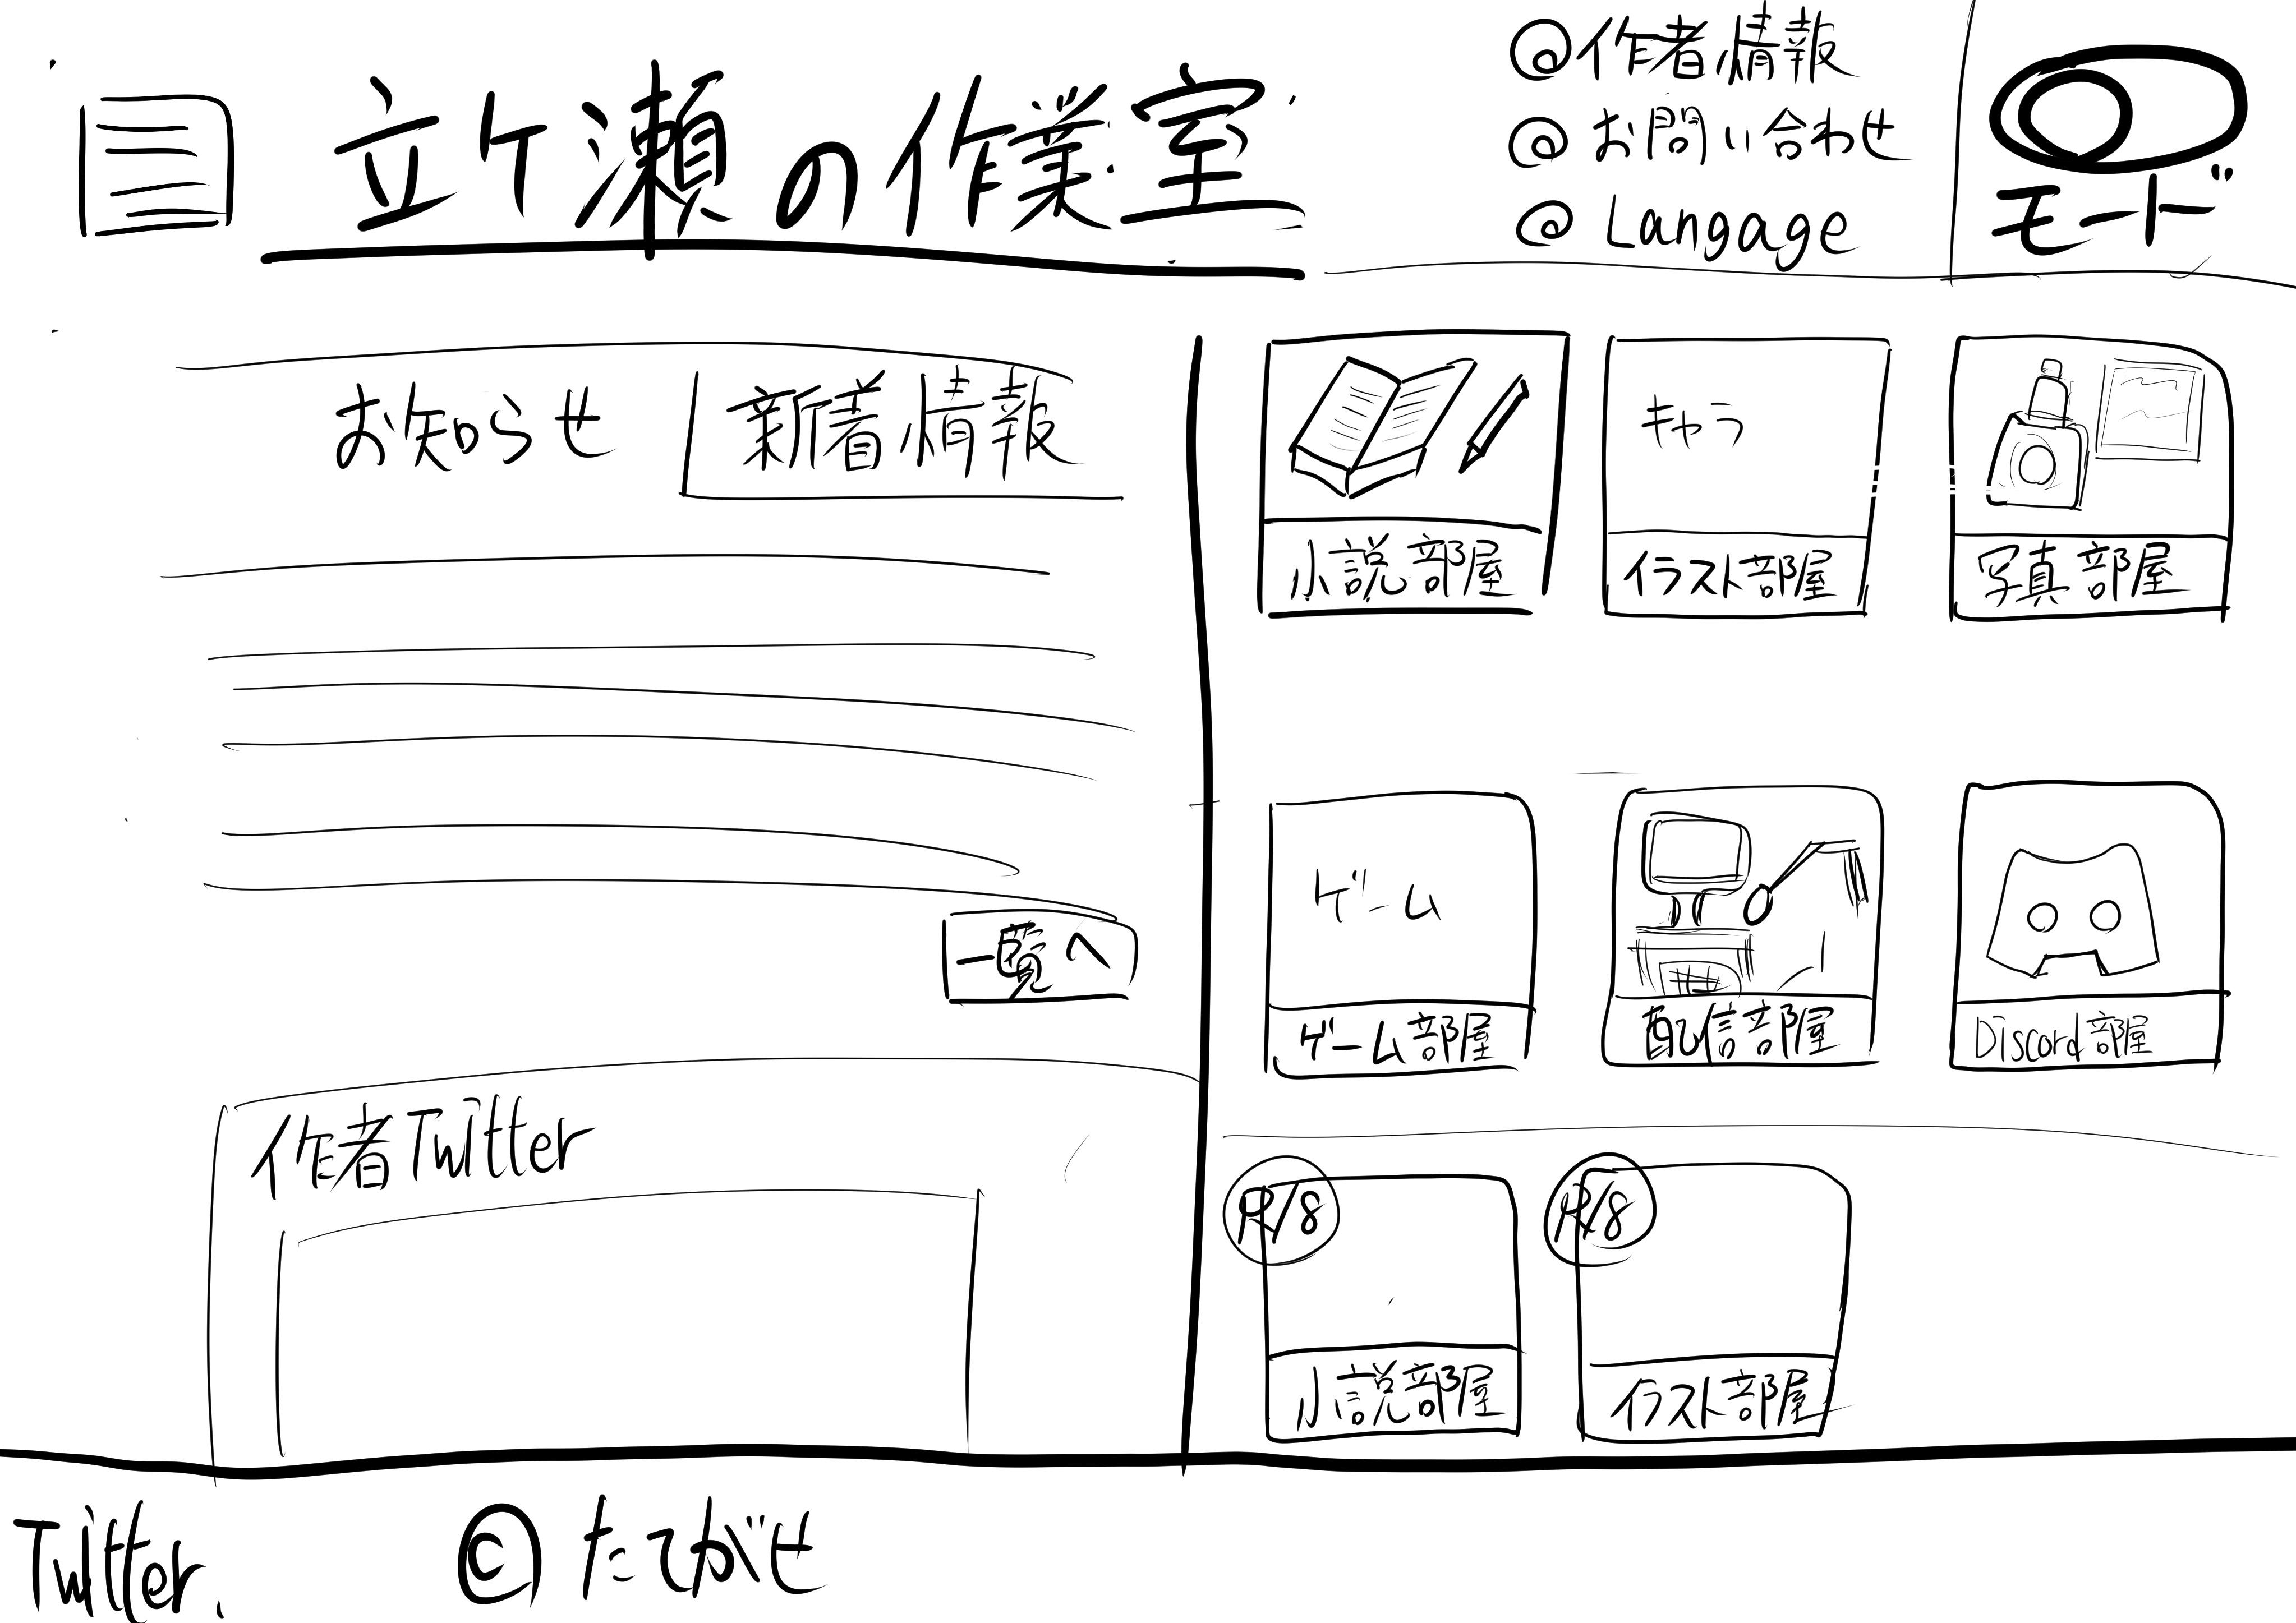 立ケ瀬の作業室
@作者情報
@お問い合わせ
@Langage
モード
お知らせ 新着情報
一覧へ
作者Twitter
小説部屋
キャラ
イラスト部屋
写真部屋
ゲーム
ゲーム部屋
配信部屋
Discord部屋
R18
小説部屋
R18
イラスト部屋
Twitter
©たてがせ